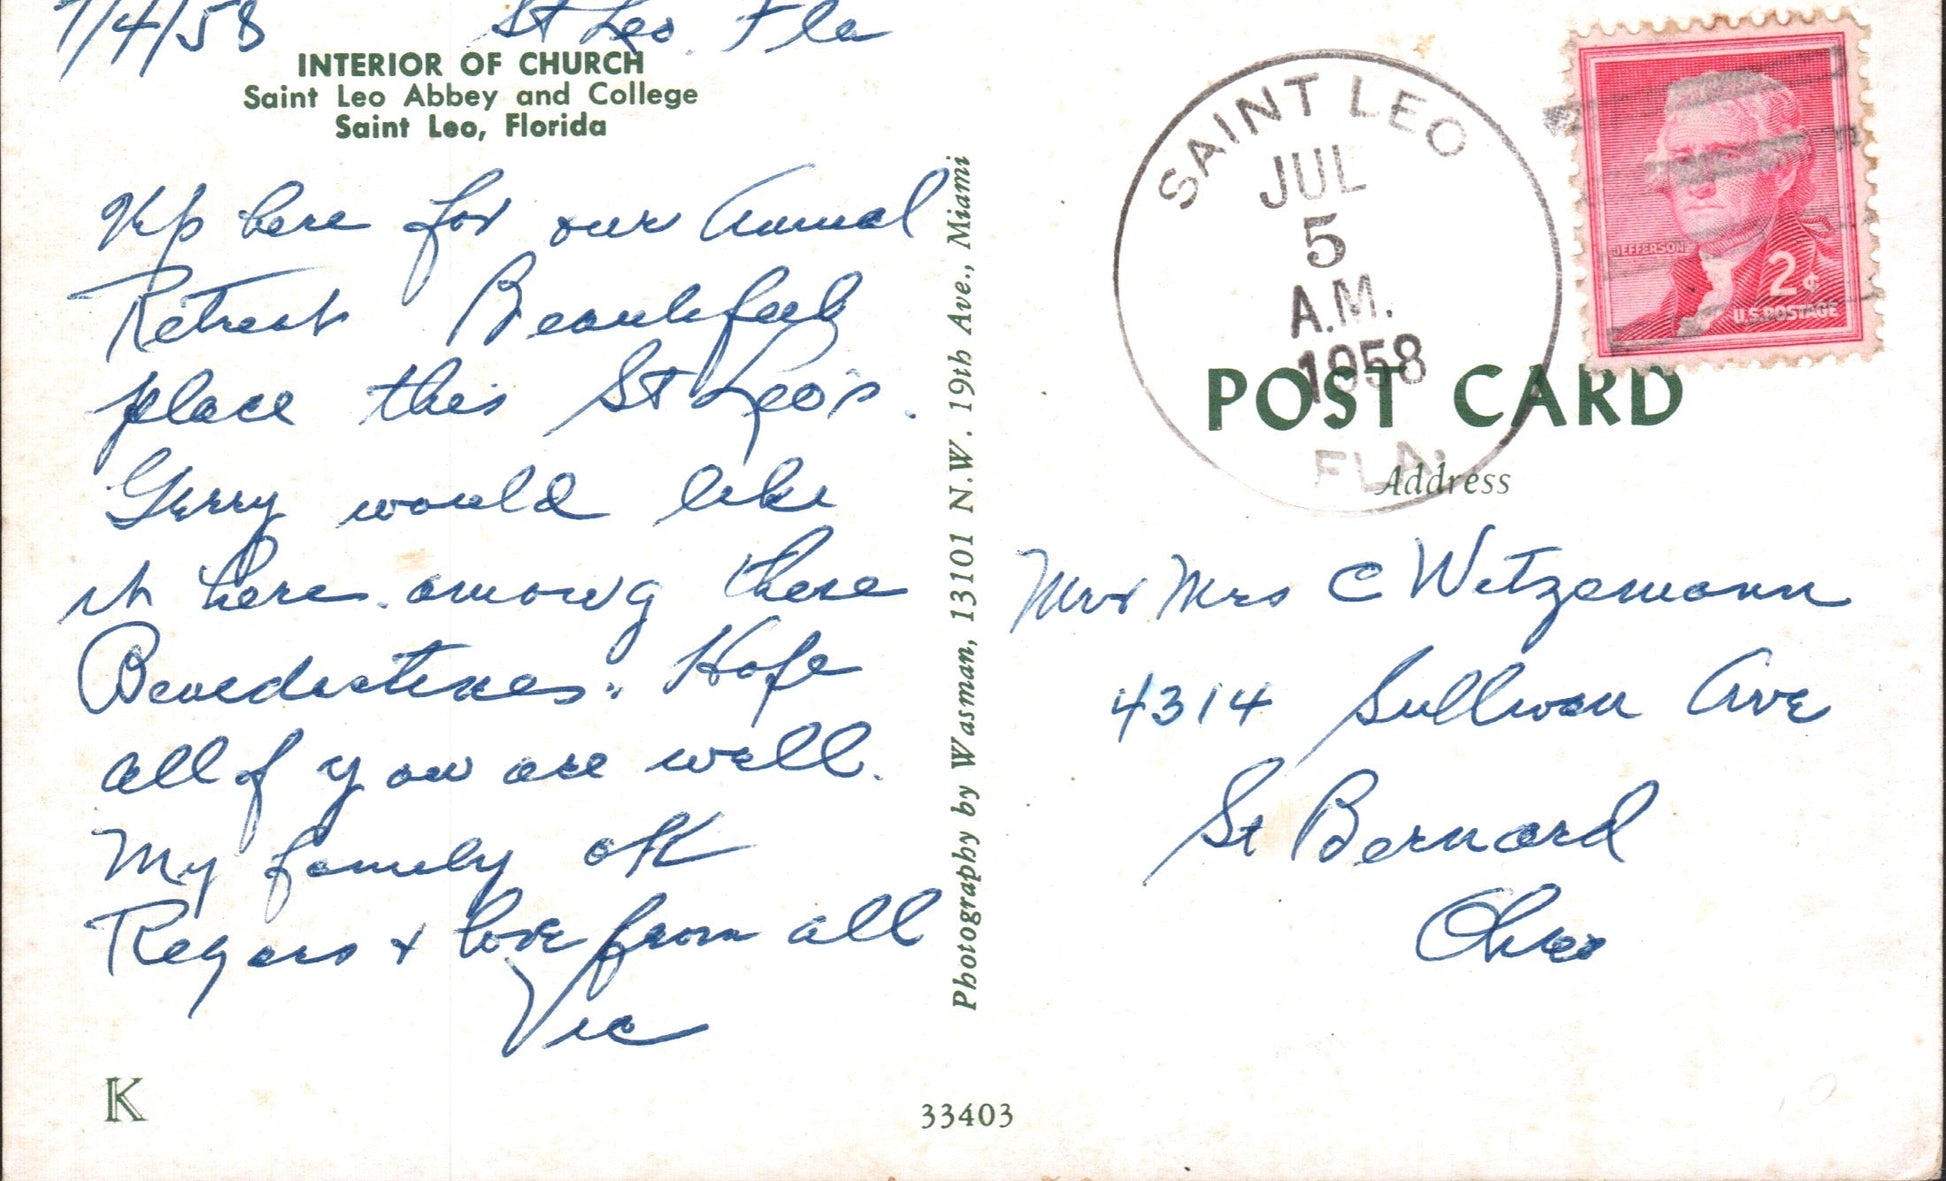 7/4/58 St Leo. Fla
INTERIOR OF CHURCH
Saint Leo Abbey and College
Saint Leo, Florida
Up here for our Annual
Retreat Beautiful
place this St Leo's.
Gerry would like
it here among these
Benedictines. Hope
all of you are well.
My family OK
Regars + love from all
Vic
K
33403
Photography by Wasman, 13101 N.W. 19th Ave., Miami
SAINT LEO
JUL
5
A.M.
1958
FLA.
JEFFERSON
2¢
U.S. POSTAGE
POST CARD
Address
Mr & Mrs C Witzemann
4314 Sullivan Ave
St Bernard
Ohio